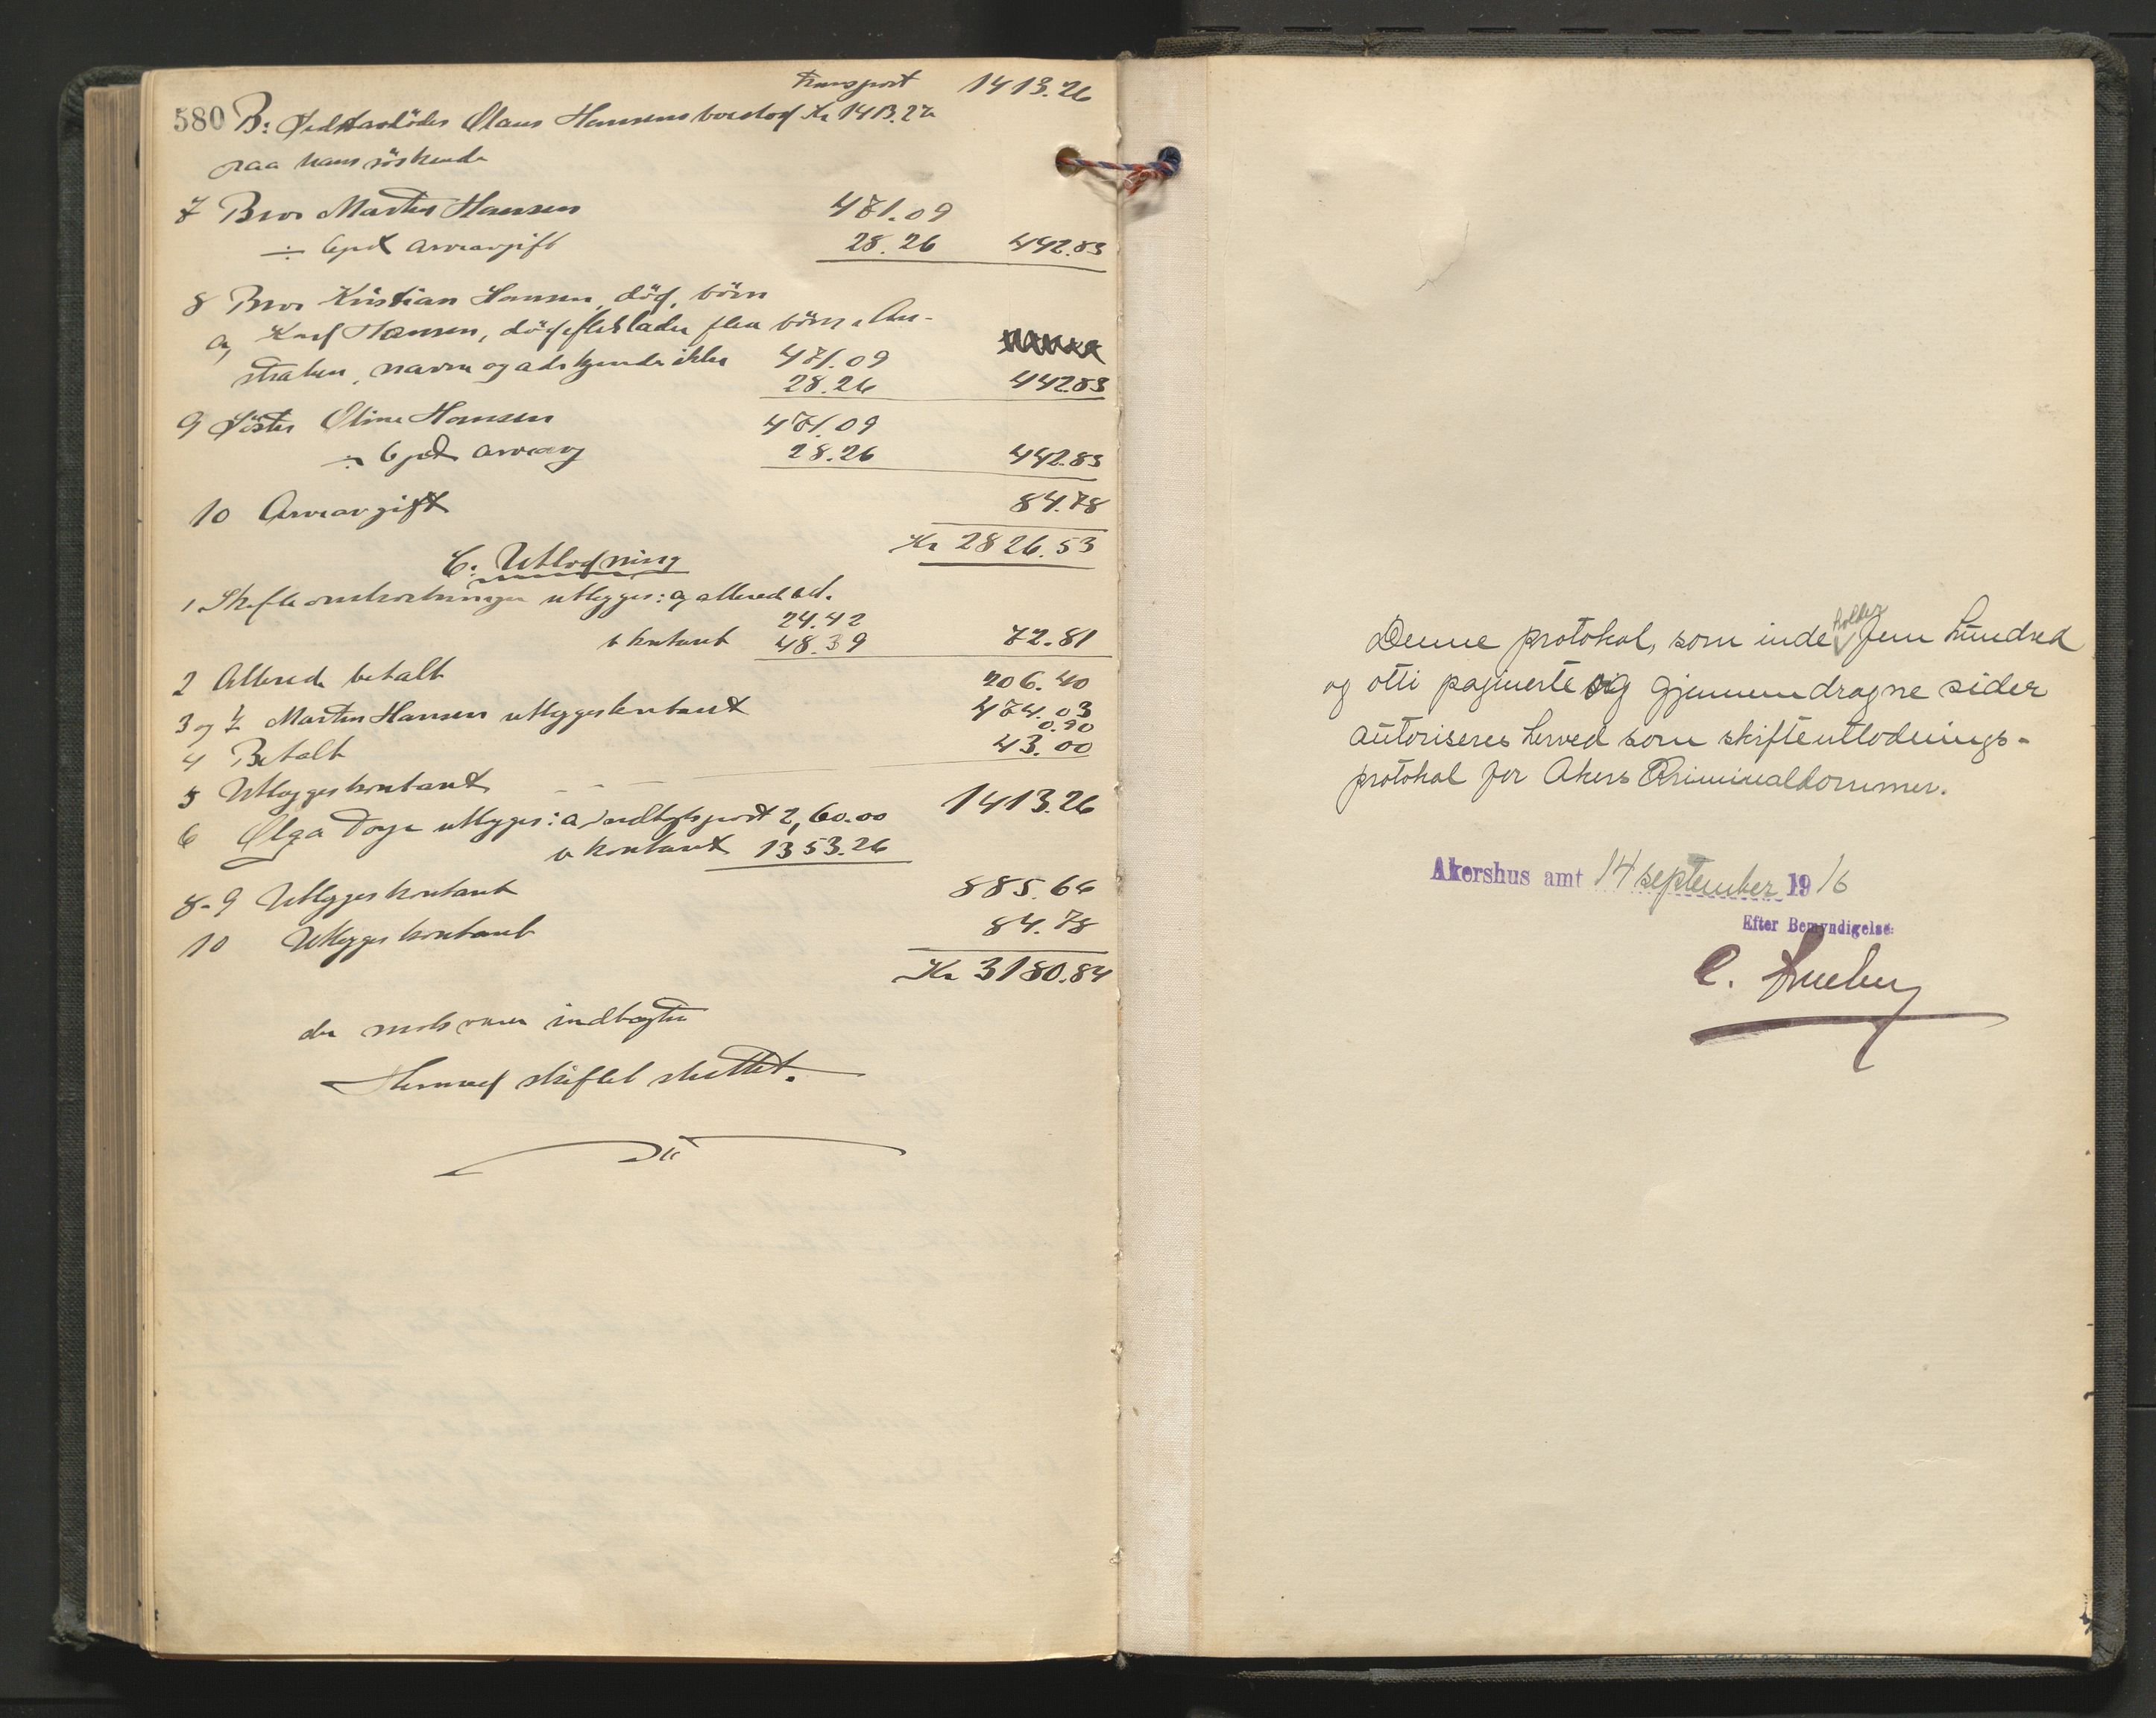 Transport 1413.26
580 B: Sidstavdødes Olaus Hansens boeslod Kr 1413.27
paa hans söskende
7 Bror Martin Hansen 471.09
÷ 6 pct arveavgift 28.26 442.83
8 Bror Kristian Hansen, död, börn
a, Karl Hansen, död efterlader flere börn i Au-
stralien, navn og adr. kjendes ikke 471.09
28.26 442.83
9 Söster Oline Hansen 471.09
÷ 6 pct arveavg 28.26 442.83
10 Arveavgift 84.78
Kr 2826.53
C: Utlodning
1 Skifteomkostninger utlægges: a allered bet.
24.42
b kontant 48.39 72.81
2 Allerede betalt 206.40
3 og 7 Martin Hansen utlægges kontant 474.03
0.90
4 Betalt 43.00
5 Utlægges kontant - -
6 Olga Dorje utlægges: a indtægtspost 2, 60.00 1413.26
b kontant 1353.26
8-9 Utlægges kontant 885.66
10 Utlægges kontant 84.78
Kr 3180.84
der motsvarer indtægten
Hermed skiftet sluttet.
Denne protokol, som indeholder fem hundred
og otti paginerte og gjennemdragne sider
autoriseres herved som skifteutlodnings-
protokol for Akers Kriminaldommer.
Akershus amt 14 september 1916
Efter Bemyndigelse